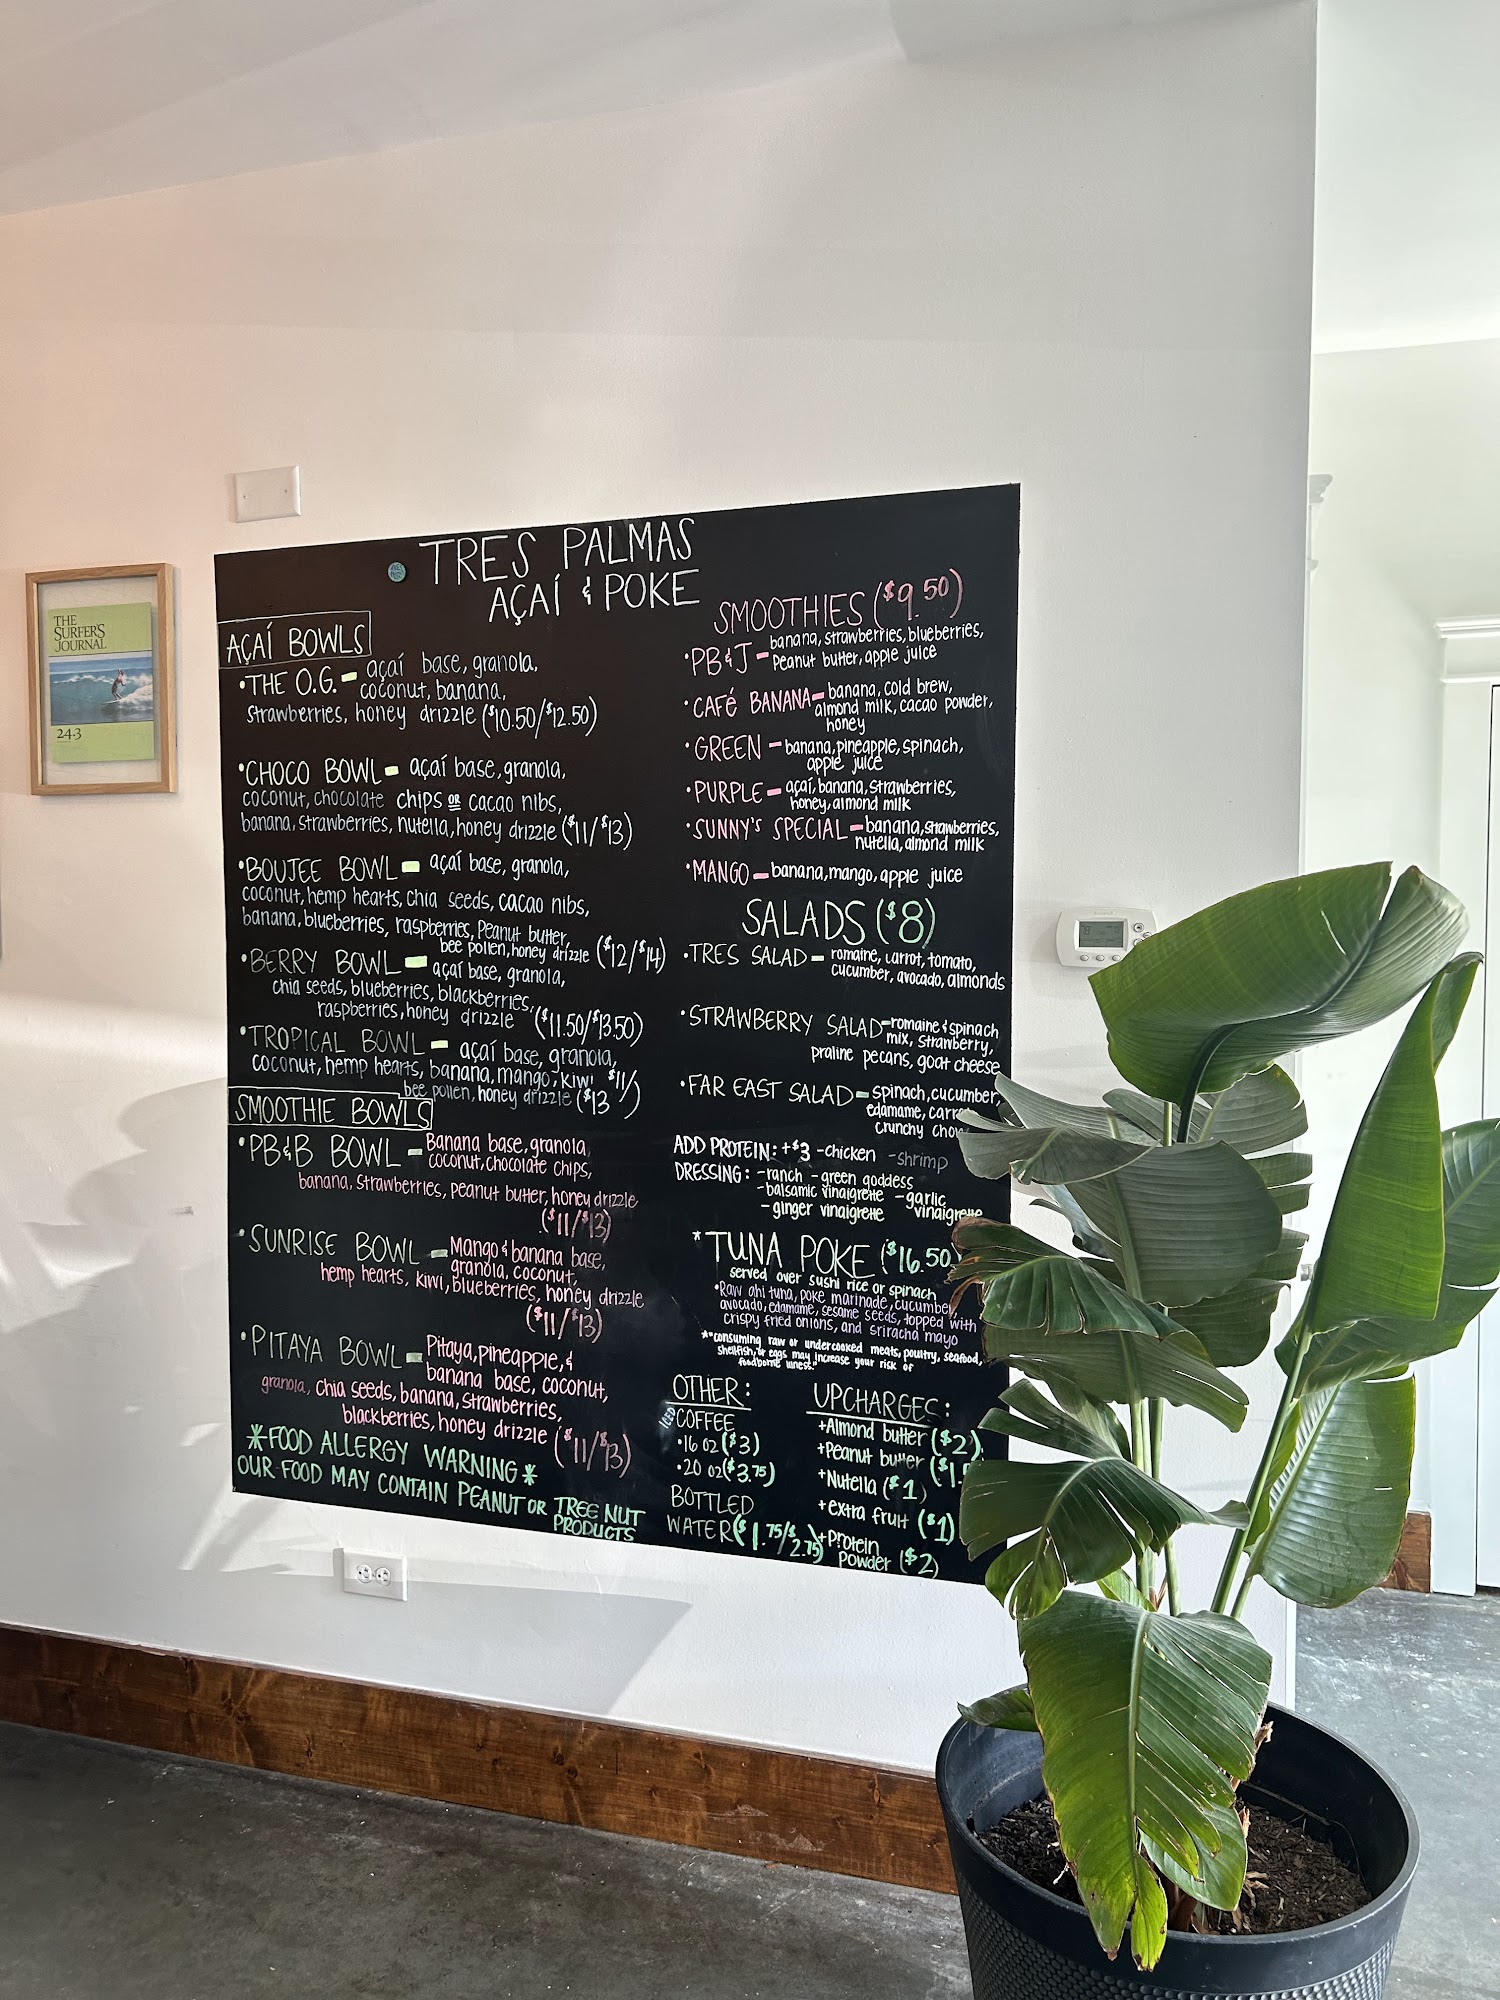 THE
SURFER'S
JOURNAL
24.3
TRES PALMAS
AÇAÍ & POKE
AÇAÍ BOWLS
• THE O.G. - açaí base, granola,
coconut, banana,
strawberries, honey drizzle ($10.50/$12.50)
• CHOCO BOWL - açaí base, granola,
coconut, chocolate chips OR cacao nibs,
banana, strawberries, nutella, honey drizzle ($11/$13)
• BOUJEE BOWL - açaí base, granola,
coconut, hemp hearts, chia seeds, cacao nibs,
banana, blueberries, raspberries, Peanut butter,
bee pollen, honey drizzle ($12/$14)
• BERRY BOWL - açaí base, granola,
chia seeds, blueberries, blackberries,
raspberries, honey drizzle ($11.50/$13.50)
• TROPICAL BOWL - açaí base, granola,
coconut, hemp hearts, banana, mango, kiwi
bee pollen, honey drizzle ($11/$13)
SMOOTHIE BOWLS
• PB&B BOWL - Banana base, granola,
coconut, chocolate chips,
banana, strawberries, peanut butter, honey drizzle
($11/$13)
• SUNRISE BOWL - Mango & banana base,
granola, coconut,
hemp hearts, kiwi, blueberries, honey drizzle
($11/$13)
• PITAYA BOWL - Pitaya, pineapple, &
banana base, coconut,
granola, chia seeds, banana, strawberries,
blackberries, honey drizzle ($11/$13)
*FOOD ALLERGY WARNING*
OUR FOOD MAY CONTAIN PEANUT OR TREE NUT
PRODUCTS
SMOOTHIES ($9.50)
• PB&J - banana, strawberries, blueberries,
Peanut butter, apple juice
• CAFÉ BANANA - banana, cold brew,
almond milk, cacao powder,
honey
• GREEN - banana, pineapple, spinach,
apple juice
• PURPLE - açaí, banana, strawberries,
honey, almond milk
• SUNNY'S SPECIAL - banana, strawberries,
nutella, almond milk
• MANGO - banana, mango, apple juice
SALADS ($8)
• TRES SALAD - romaine, carrot, tomato,
cucumber, avocado, almonds
• STRAWBERRY SALAD - romaine & spinach
mix, strawberry,
praline pecans, goat cheese
• FAR EAST SALAD - spinach, cucumber,
edamame,
crunchy
ADD PROTEIN: +$3 - chicken - shrimp
DRESSING: - ranch - green goddess
- balsamic vinaigrette - garlic vinaigrette
- ginger vinaigrette
*TUNA POKE ($16.50)
served over sushi rice or spinach
• Raw ahi tuna, poke marinade, cucumber,
avocado, edamame, sesame seeds, topped with
crispy fried onions, and sriracha mayo
**consuming raw or undercooked meats, poultry, seafood,
shellfish, or eggs may increase your risk of
foodborne illness.
OTHER:
ICED COFFEE
• 16 oz ($3)
• 20 oz ($3.75)
BOTTLED
WATER ($1.75/$2.75)
UPCHARGES:
+Almond butter ($2)
+Peanut butter
+Nutella ($1)
+extra fruit ($1)
+Protein
Powder ($2)